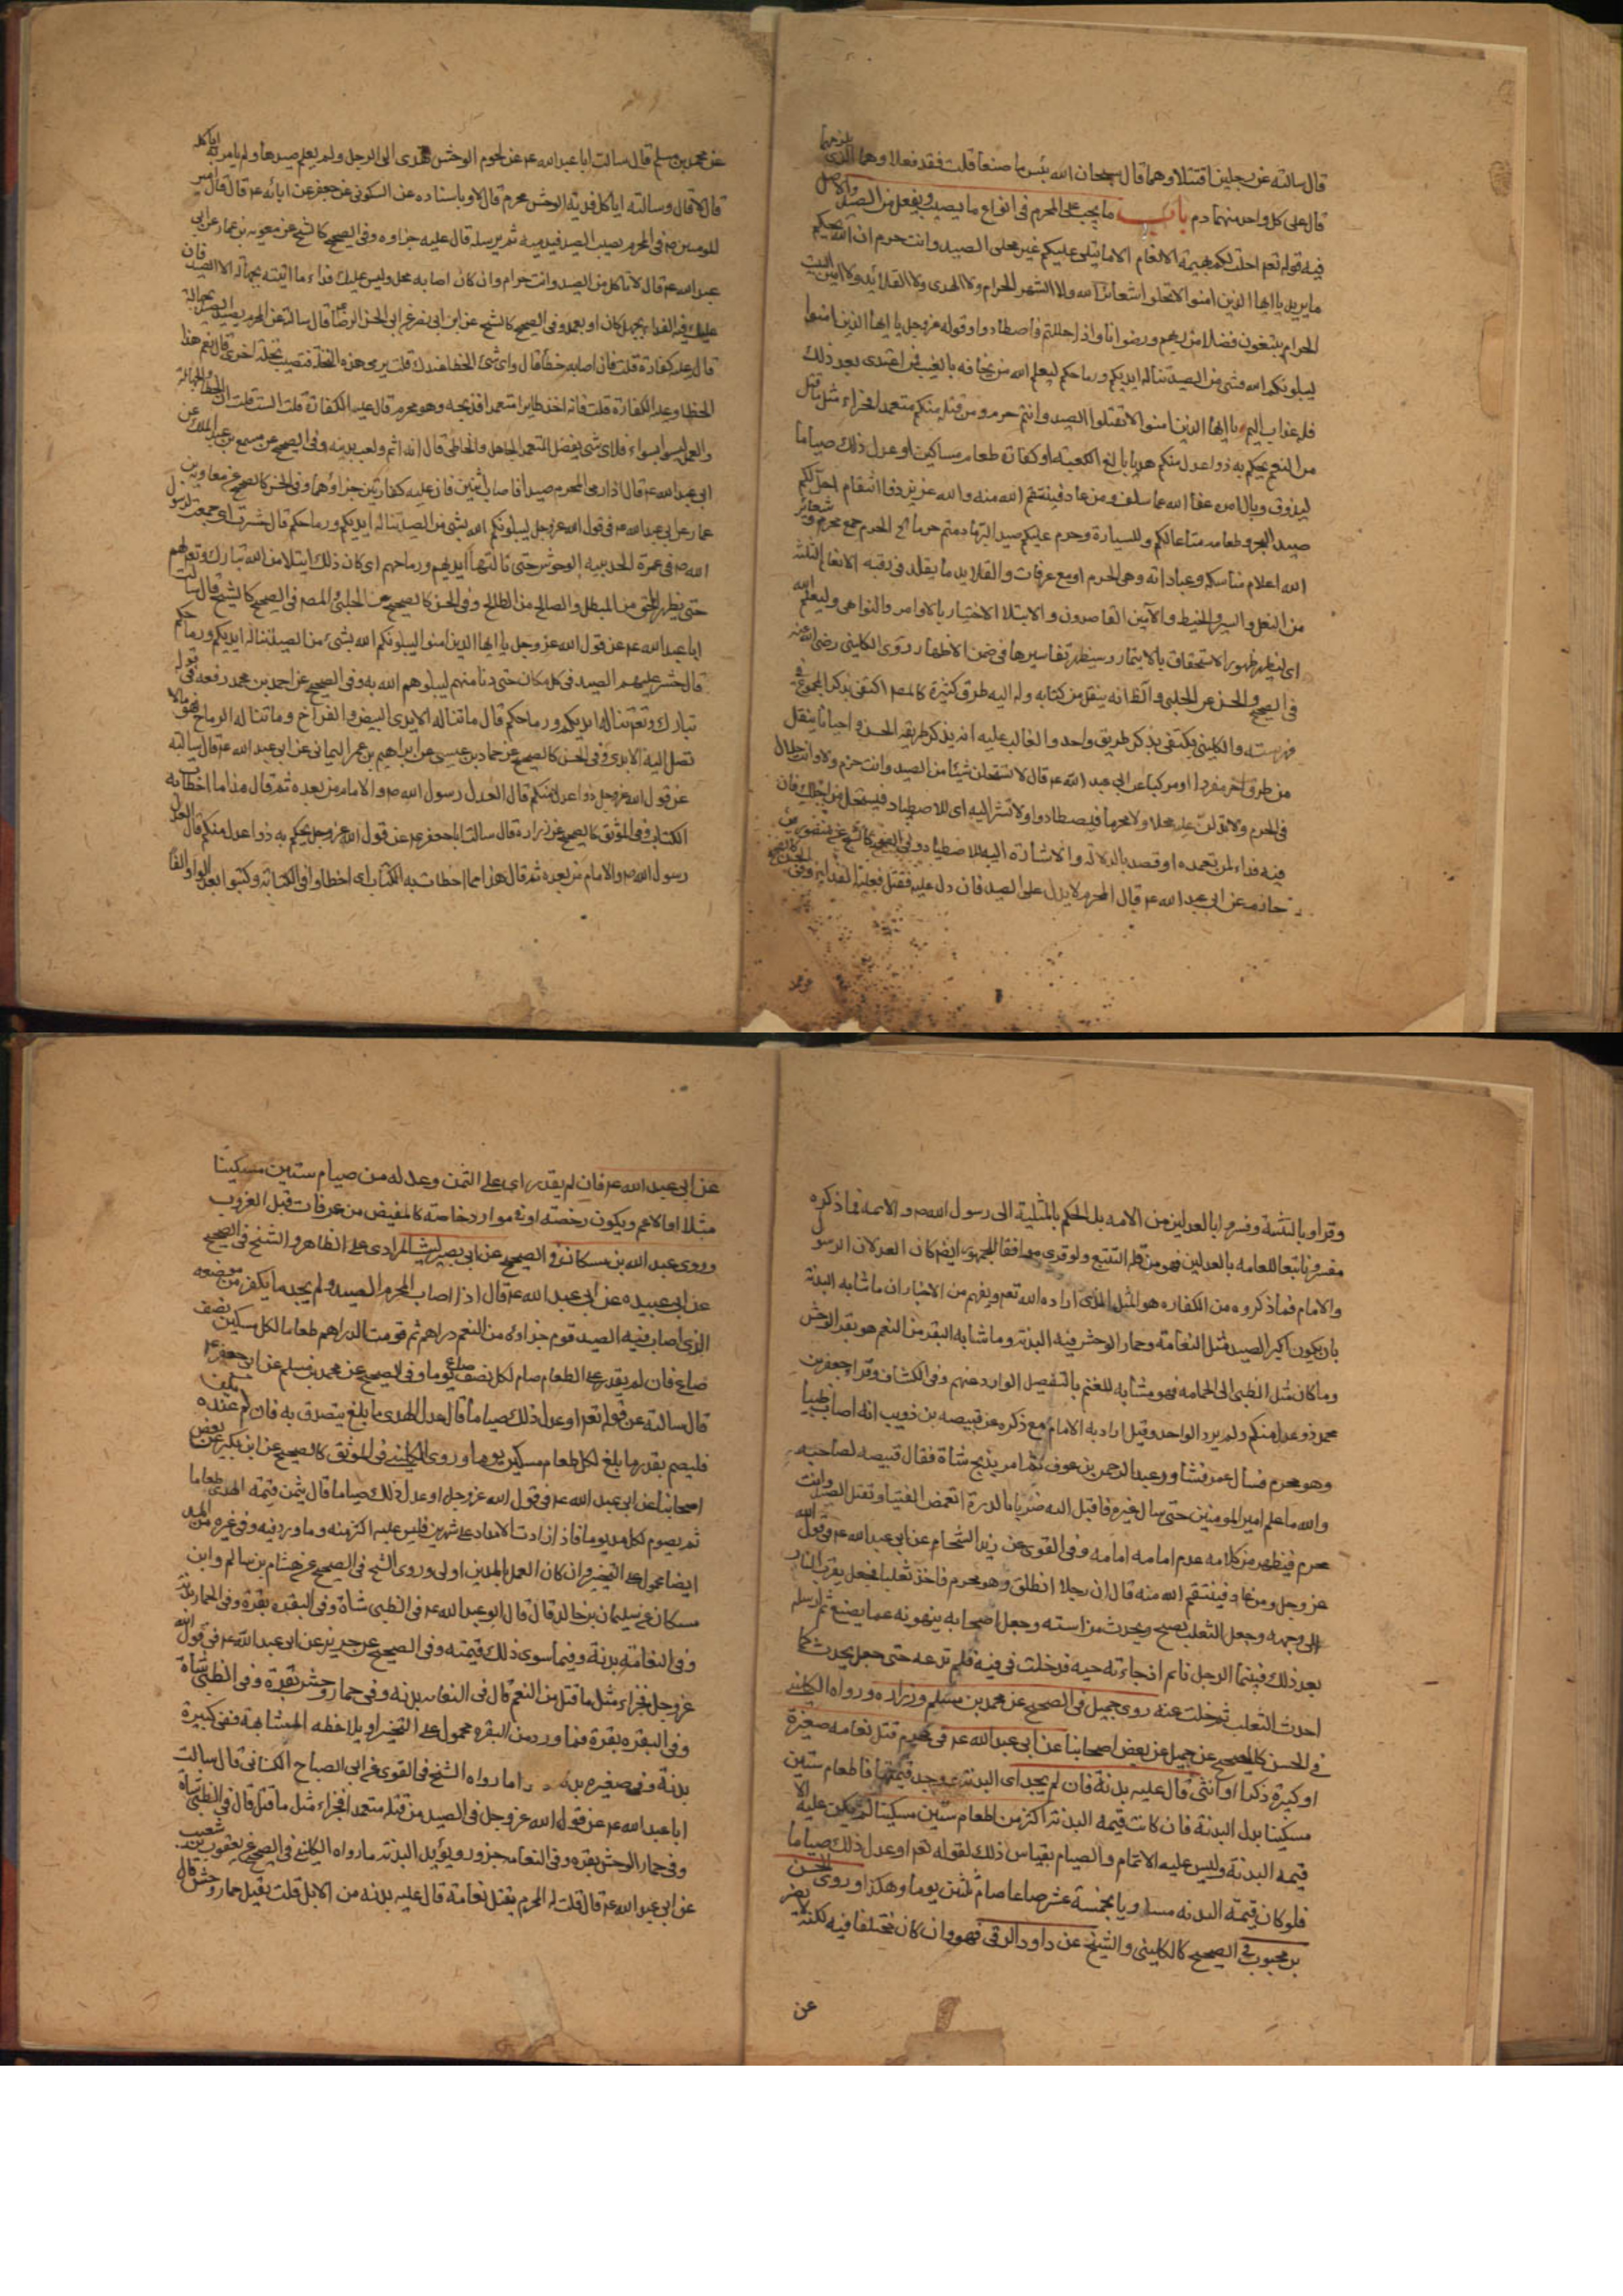 قال سالته عن رجلين اقتتلا وهما قال سبحان الله بئس ما صنعا قلت فقد فعلا وهما الذى يلزمهما
قال على كل واحد منهما دم باب ما يجب على المحرم فى انواع ما يصيب ويفعل من الصيد والاصل
فيه قوله تعم احلت لكم بهيمة الانعام الا ما يتلى عليكم غير محلى الصيد وانتم حرم ان الله يحكم
ما يريد يا ايها الذين امنوا لا تحلوا شعائر الله ولا الشهر الحرام ولا الهدى ولا القلائد ولا امين البيت
الحرام يبتغون فضلا من ربهم ورضوانا واذا حللتم فاصطادوا وقوله عز وجل يا ايها الذين امنوا
ليبلونكم الله بشى من الصيد تناله ايديكم ورماحكم ليعلم الله من يخافه بالغيب فمن اعتدى بعد ذلك
فله عذاب اليم يا ايها الذين امنوا لا تقتلوا الصيد وانتم حرم ومن قتله منكم متعمدا فجزاء مثل ما قتل
من النعم يحكم به ذوا عدل منكم هديا بالغ الكعبة او كفارة طعام مساكين او عدل ذلك صياما
ليذوق وبال امره عفا الله عما سلف ومن عاد فينتقم الله منه والله عزيز ذو انتقام احل لكم
صيد البحر وطعامه متاعا لكم وللسيارة وحرم عليكم صيد البر ما دمتم حرما الخ الحرم جمع محرم وشعائر
الله اعلام مناسكه وعباداته وهى الحرم او مع عرفات والقلايد ما يقلد فى رقبه الانعام الثلثة
من النعل والسير والخيط والآمين القاصدون والابتلا الاختيار بالاوامر والنواهى وليعلم الله
اى ليظهر ظهور الاستحقاق بالايتمار وسيظهر تفاسيرها فى ضمن الاظهار روى الكلينى رضى الله عنه
فى الصحيح والحسن عن الحلبى والظ انه ينقل من كتابه وله اليه طرق كثيرة كالمصا اكتفى بذكر المجموع فى
فهرسته والكلينى يكتفى بذكر طريق واحد والغالب عليه انه يذكر طريقه الحسن واحيانا ينقل
من طرق اخر مفردا او مركبا عن ابى عبد الله ع قال لا تستحلن شيئا من الصيد وانت حرام ولا وانت حلال
فى الحرم ولا تدلن عليه محلا ولا محرما فيصطادوا ولا تشر اليه اى للاصطياد فيستحل من اجلك فان
فيه فداء لمن تعمده او قصد بالدلالة والاشارة اليه للاصطياد وفى الصحيح كالشيخ عن منصور بن
حازم عن ابى عبد الله ع قال المحرم لا يدل على الصيد فان دل عليه فقتل فعليه الفداء وفى الحسن كالصحيح
عن محمد بن مسلم قال سالت ابا عبد الله ع عن لحوم الوحش تهدى الى الرجل ولم يعلم صيدها ولم يامر به اياكله
قال لا قال وسالته اياكل قديد الوحش محرم قال لا وباسناده عن السكونى عن جعفر عن ابائه ع قال قال امير
المومنين ص فى المحرم يصيب الصيد فيدميه ثم يرسله قال عليه جزاوه وفى الصحيح كالشيخ عن معوية بن عمار عن ابى
عبد الله ع قال لا تاكل من الصيد وانت حرام وان كان اصابه محل وليس عليك فداء ما اتيته بجهالة الا الصيد فان
عليك فيه الفداء بجهل كان او بعمد وفى الصحيح كالشيخ عن ابن ابى نصر عن ابى الحسن الرضا ع قال سالته عن المحرم يصيد الصيد بجهالة
قال عليه كفارة قلت فان اصابه خطأ قال واى شى الخطا عندك قلت يرمى هذه النخلة فتصيب نخلة اخرى قال نعم هذا
الخطا وعليه الكفارة قلت فانه اخذ طايرا متعمدا فذبحه وهو محرم قال عليه الكفارة قلت الست قلت ان الخطا والجهالة
والعمد ليسوا بسواء فلاى شى يفضل المتعمد الجاهل والخاطى قال انه اثم ولعب بدينه وفى الصحيح عن مسمع بن عبد الملك عن
ابى عبد الله ع قال اذا رمى المحرم صيدا فاصاب اثنين فان عليه كفارتين جزاؤهما وفى الحسن كالصحيح عن معاوية بن
عمار عن ابى عبد الله ع فى قول الله عز وجل ليبلونكم الله بشى من الصيد تناله ايديكم ورماحكم قال حشرت اى جمعت لرسول
الله ص فى عمرة الحديبيه الوحوش حتى نالتها ايديهم ورماحهم اى كان ذلك ابتلا من الله تبارك وتعم لهم
حتى يظهر المحق من المبطل والصالح من الطالح وفى الحسن كالصحيح عن الحلبى والمصا فى الصحيح كالشيخ قال سالت
ابا عبد الله ع عن قول الله عز وجل يا ايها الذين امنوا ليبلونكم الله بشىء من الصيد تناله ايديكم ورماحكم
قال حشر عليهم الصيد فى كل مكان حتى دنا منهم ليبلوهم الله به وفى الصحيح عن احمد بن محمد رفعه فى قوله
تبارك وتعم تناله ايديكم ورماحكم قال ما تناله الايدى البيض والفراخ وما تناله الرماح فهو ما لا
تصل اليه الايدى وفى الحسن كالصحيح عن حماد بن عيسى عن ابراهيم بن عمر اليمانى عن ابى عبد الله ع قال سالته
عن قول الله عز وجل ذوا عدل منكم قال العدل رسول الله ص والامام من بعده ثم قال هذا مما اخطات به
الكتاب وفى الموثق كالصحيح عن زرارة قال سالت ابا جعفر ع عن قول الله عز وجل يحكم به ذوا عدل منكم قال العدل
رسول الله ص والامام من بعده ثم قال هذا مما اخطات به الكتاب اى اخطاوا فى الكتابة وكتبوا بعد الواو الفا
وقراوا بالتثنية وفسروا بالعدلين من الامه بل الحكم بالمثلية الى رسول الله ص والائمه فما ذكره
مفسرونا تبعا للعامه بالعدلين فهو من قلة التتبع ولو قرى موافقا للجمهور ايضا كان العدلان الرسول
والامام فما ذكروه من الكفاره هو المثل الذى اراده الله تعم ويفهم من الاخبار ان ما شابه البدنة
بان يكون اكبر الصيد مثل النعامة وحمار الوحش فيه البدنة وما شابه البقر من النعم هو بقر الوحش
وما كان مثل الظبى الى الحمامه فهو مشابه للغنم بالتفصيل الوارد عنهم وفى الكشاف وقرا جعفر بن
محمد ذو عدل منكم ولم يرد الواحد وقيل اراد به الامام مع ذكره عن قبيصه بن ذويب انه اصاب ظبيا
وهو محرم فسال عمر فشاور عبد الرحمن بن عوف ثم امر بذبح شاة فقال قبيصه لصاحبه
والله ما علم امير المومنين حتى سال غيره فاقبل اليه ضربا بالدرة اتغمض الفتيا وتقتل الصيد وانت
محرم فيظهر من كلامه عدم امامه امامه وفى القوى عن زيد الشحام عن ابى عبد الله ع فى قول الله
عز وجل ومن عاد فينتقم الله منه قال ان رجلا انطلق وهو محرم فاخذ ثعلبا فجعل يقرب النار
الى وجهه وجعل الثعلب يصيح ويحدث من استه وجعل اصحابه ينهونه عما يصنع ثم ارسله
بعد ذلك فبينما الرجل نائم اذ جاءته حيه فدخلت فى فيه فلم تدعه حتى جعل يحدث كما
احدث الثعلب ثم خلت عنه روى جميل فى الصحيح عن محمد بن مسلم وزراره ورواه الكلينى
فى الحسن كالصحيح عن جميل عن بعض اصحابنا عن ابى عبد الله ع فى محرم قتل نعامه صغيرة
او كبيرة ذكرا او انثى قال عليه بدنة فان لم يجد اى البدنة ووجد قيمتها فاطعام ستين
مسكينا بدل البدنة فان كانت قيمة البدنة اكثر من اطعام ستين مسكينا لم يكن عليه الا
قيمه البدنة وليس عليه الاتمام والصيام بقياس ذلك لقوله تعم او عدل ذلك صياما
فلو كان قيمة البدنه مساويا بخمسة عشر صاعا صام ثلثين يوما وهكذا وروى الحسن
بن محبوب فى الصحيح كالكلينى والشيخ عن داود الرقى فهو وان كان مختلفا فيه لكنه لا يضر
عن
عن ابى عبد الله ع فان لم يقدر اى على الثمن وعدله من صيام ستين مسكينا
مثلا او الاعم ويكون رخصته او فى موارد خاصته كالمفيض من عرفات قبل الغروب
وروى عبد الله بن مسكان فى الصحيح عن ابى بصير ليث المرادى على الظاهر والشيخ فى الصحيح
عن ابى عبيده عن ابى عبد الله ع قال اذا اصاب المحرم الصيد ولم يجد ما يكفر من موضعه
الذى اصاب فيه الصيد قوم جزاؤه من النعم دراهم ثم قومت الدراهم طعاما لكل مسكين نصف
صاع فان لم يقدر على الطعام صام لكل نصف صاع يوما وفى الصحيح عن محمد بن مسلم عن ابى جعفر ع
قال سالته عن قوله تعم او عدل ذلك صياما قال عدل الهدى ما بلغ يتصدق به فان لم يكن عنده
فليصم بقدر ما بلغ لكل طعام مسكين يوما وروى الكلينى فى الموثق كالصحيح عن ابن بكير عن بعض
اصحابنا عن ابى عبد الله ع فى قول الله عز وجل او عدل ذلك صياما قال يثمن قيمة الهدى طعاما
ثم يصوم لكل مد يوما فاذا زادت الامداد على شهرين فليس عليه اكثر منه وما ورد فيه وفى غيره من المد
ايضا محمول على التخيير وان كان العمل بالمدين اولى وروى الشيخ فى الصحيح عن هشام بن سالم وابن
مسكان عن سليمان بن خالد قال قال ابو عبد الله ع فى الظبى شاة وفى البقره بقرة وفى الحمار بدنة
وفى النعامه بدنة وفيما سوى ذلك قيمته وفى الصحيح عن حريز عن ابى عبد الله ع فى قول الله
عز وجل فجزاء مثل ما قتل من النعم قال فى النعامه بدنه وفى حمار وحش بقرة وفى الظبى شاة
وفى البقره بقرة فما ورد من البقره محمول على التخيير او بملاحظه المشابهة ففى كبيرة
بدنة وفى صغيره بقره واما رواه الشيخ فى القوى عن ابى الصباح الكنانى قال سالت
ابا عبد الله ع عن قول الله عز وجل فى الصيد من قتله متعمدا فجزاء مثل ما قتل قال فى الظبى شاة
وفى حمار الوحش بقره وفى النعامه جزور ويؤيد البدنة ما رواه الكلينى فى الصحيح عن يعقوب بن شعيب
عن ابى عبد الله ع قال قلت له المحرم يقتل نعامة قال عليه بدنه من الابل قلت يقتل حمار وحش قال